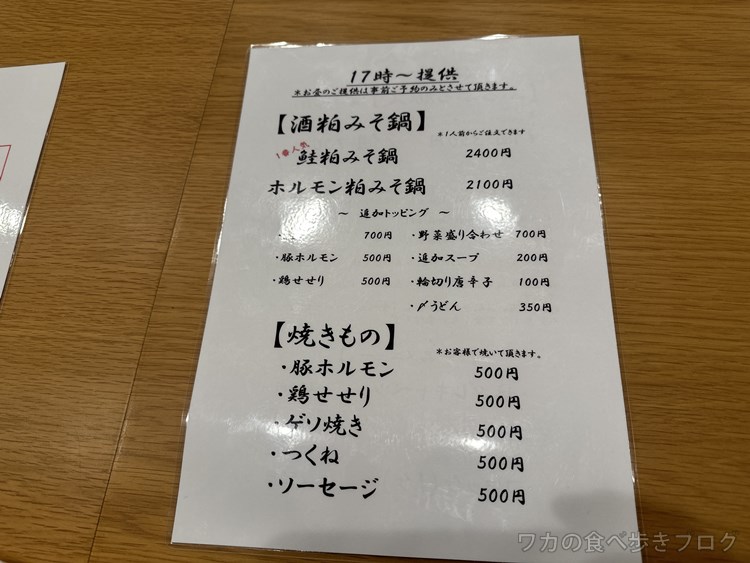 17時～提供
*お昼のご提供は事前ご予約のみとさせて頂きます。
【酒粕みそ鍋】 *1人前からご注文できます
人気
鮭粕みそ鍋 2400円
ホルモン粕みそ鍋 2100円
～ 追加トッピング ～
700円 ・野菜盛り合わせ 700円
・豚ホルモン 500円 ・追加スープ 200円
・鶏せせり 500円 ・輪切り唐辛子 100円
・〆うどん 350円
【焼きもの】 *お客様で焼いて頂きます。
・豚ホルモン 500円
・鶏せせり 500円
・ゲソ焼き 500円
・つくね 500円
・ソーセージ 500円
ワカの食べ歩きブログ